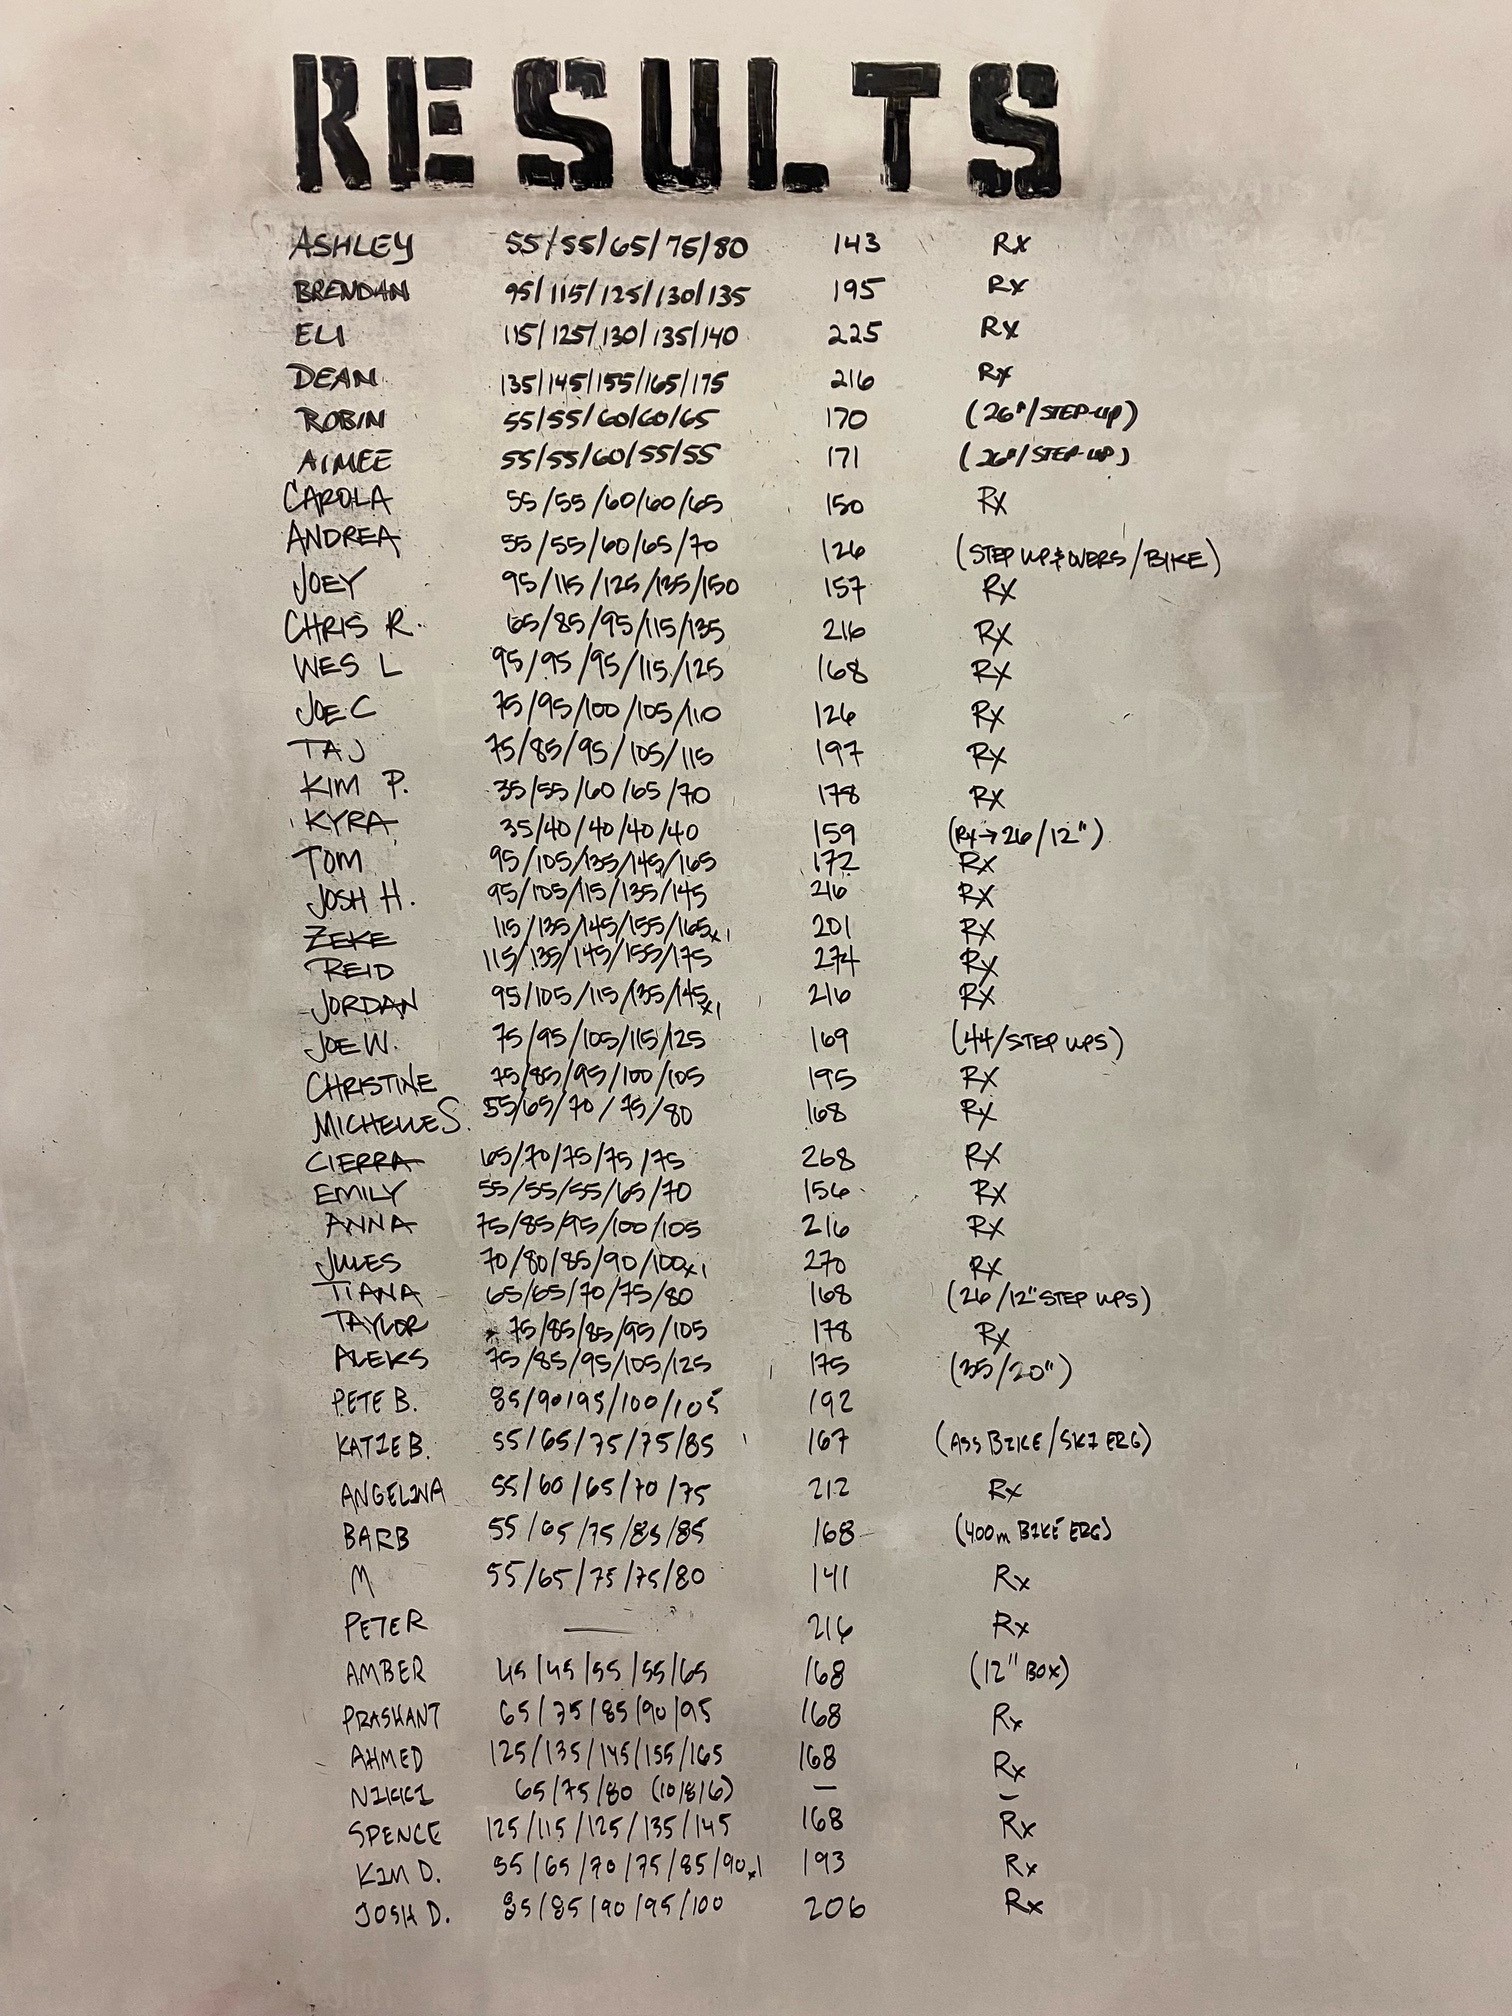 RESULTS
ASHLEY 55/55/65/75/80 143 Rx
BRENDAN 95/115/125/130/135 195 Rx
ELI 115/125/130/135/140 225 Rx
DEAN 135/145/155/165/175 216 Rx
ROBIN 55/55/60/60/65 170 (26"/STEP-UP)
AIMEE 55/55/60/55/55 171 (26"/STEP-UP)
CAROLA 55/55/60/60/65 150 RX
ANDREA 55/55/60/65/70 126 (STEP UP & OVERS/BIKE)
JOEY 95/115/125/135/150 157 RX
CHRIS R. 65/85/95/115/135 216 RX
WES L 95/95/95/115/125 168 RX
JOE C 75/95/100/105/110 126 RX
TAJ 75/85/95/105/115 197 RX
KIM P. 35/55/60/65/70 178 RX
KYRA 35/40/40/40/40 159 (RX→26/12")
TOM 95/105/135/145/165 172 RX
JOSH H. 95/105/115/135/145 216 RX
ZEKE 115/135/145/155/165x1 201 RX
REID 115/135/145/155/175 274 RX
JORDAN 95/105/115/135/145x1 216 RX
JOE W. 75/95/105/115/125 169 (44/STEP UPS)
CHRISTINE 75/85/95/100/105 195 RX
MICHELLE S. 55/65/70/75/80 168 RX
CIERRA 65/70/75/75/75 268 RX
EMILY 55/55/55/65/70 156 RX
ANNA 75/85/95/100/105 216 RX
JULES 70/80/85/90/100x1 270 RX
TIANA 65/65/70/75/80 168 (26/12" STEP UPS)
TAYLOR 75/85/85/95/105 178 RX
ALEKS 75/85/95/105/125 175 (35/20")
PETE B. 85/90/95/100/105 192
KATIE B. 55/65/75/75/85 167 (ASS BIKE/SKI ERG)
ANGELINA 55/60/65/70/75 212 Rx
BARB 55/65/75/85/85 168 (400m BIKE ERG)
M 55/65/75/75/80 141 Rx
PETER — 216 Rx
AMBER 45/45/55/55/65 168 (12" BOX)
PRASHANT 65/75/85/90/95 168 Rx
AHMED 125/135/145/155/165 168 Rx
NIKKI 65/75/80 (10/8/6) — –
SPENCE 125/115/125/135/145 168 Rx
KIM D. 55/65/70/75/85/90x1 193 Rx
JOSH D. 85/85/90/95/100 206 Rx